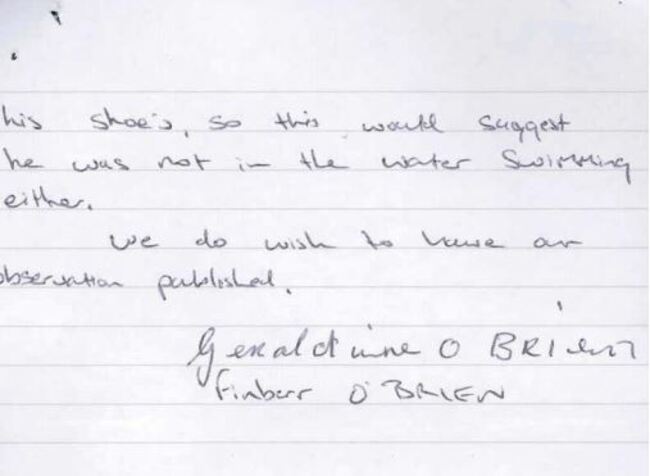 his shoe's, so this would suggest
he was not in the water Swimming
either.
We do wish to have an
observation published.
Geraldine O BRIEN
Finbarr O'BRIEN